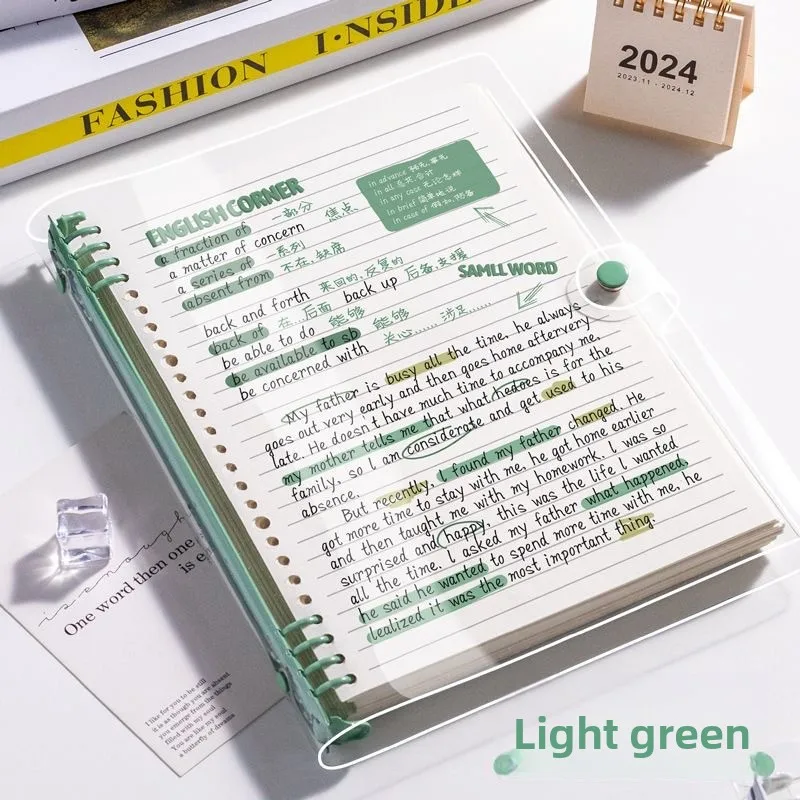 FASHION I·NSIDE
2024
2023.11 - 2024.12
ENGLISH CORNER
a fraction of 一部分
a matter of concern 焦点
a series of 一系列
absent from 不在,缺席
in advance
in all 总共,合计
in any case 无论怎样
in brief 简单地说
in case of 假如,防备
back and forth 来回的,反复的
back up 后备,支援
SAMLL WORD
back of 在…后面
be able to do 能够
be available to sb 能够
be concerned with 关心……
My father is busy all the time. he always
goes out very early and then goes home aftervery
late. He doesn't have much time to accompany me.
my mother tells me that what hedoes is for the
family, so I am considerate and get used to his
absence.
But recently, I found my father changed. He
got more time to stay with me, he got home earlier
and then taught me with my homework. I was so
surprised and happy, this was the life I wanted
all the time. I asked my father what happened,
he said he wanted to spend more time with me, he
lealized it was the most important thing.
is enough
One word then one
is e
I like for you to be still
it is as though you are absent
you emerge from the things
filled with my soul
You are like my soul
a butterfly of dreams
Light green